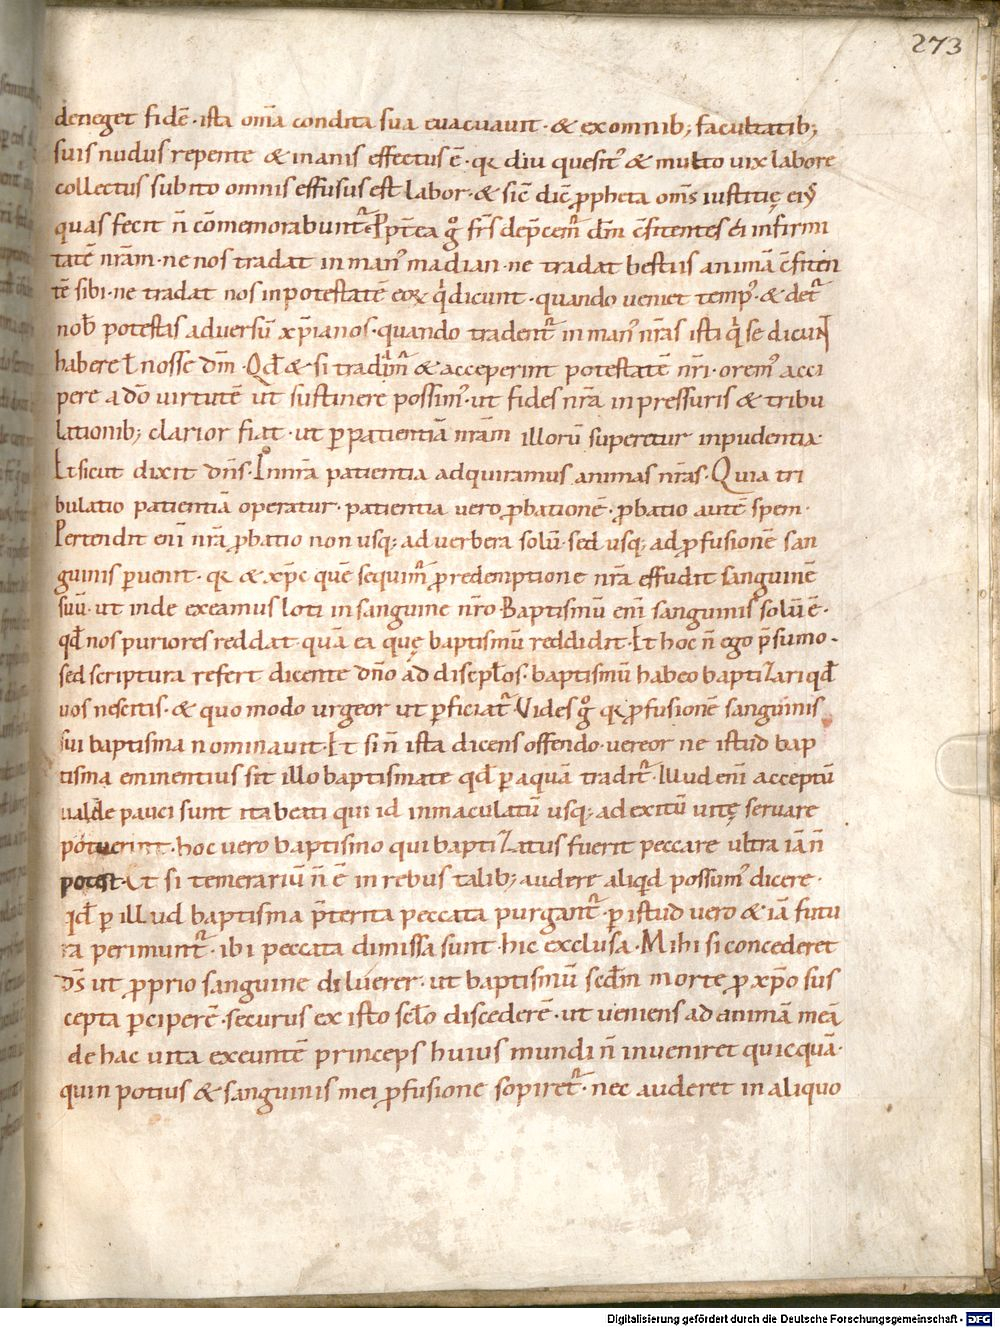 273
deneget fidē · ista om̄a condita sua euacuauit · & exomnib; facultatib;
suis nudus repente & inanis effectus ē · qꝛ diu quesit᾽ & multo uix labore
collectus subito omnis effusus est labor · & sic̄ dic̄ ꝓpheta om̄s iustitię ei᾽
quas fecit n̄ cōmemorabunt᷑ · Ꝓpt̄ ea gͦ fr̄s dep̄cem᷑ dm̄ c̄fitentes ei infirmi
tatē nr̄am · ne nos tradat in man᾽ madian · ne tradat bestiis animā c̄fiten
tē sibi · ne tradat nos inpotestatē eoꝝ qͥ dicunt · quando ueniet temp᾽ · & det᷑
nob̄ potestas aduersū xp̄ianos · quando tradent᷑ in man᾽ nr̄as isti qͥ se dicunt
habere ł nosse dm̄ · Qd̄ & si tradim᷑ & acceperint potestatē nr̄i · orem᾽ acci
pere a dō uirtutē ut sustinere possim᾽ · ut fides nr̄a in pressuris & tribu
lationib; clarior fiat · ut ꝑ patientiā nr̄am illorū superetur inpudentia ·
Et sicut dixit dn̄s · In nr̄a patientia adquiramus animas nr̄as · Quia tri
bulatio patientiā operatur · patientia uero ꝓbationē · ꝓbatio autē spem ·
Pertendit eni nr̄a ꝓbatio non usq; ad uerbera solū · sed usq; ad ꝓfusionē san
guinis ꝑuenit · qꝛ & xp̄c quē sequim᷑ ꝓ redemptione nr̄a effudit sanguinē
suū · ut inde exeamus loti in sanguine nr̄o · Baptismū eni sanguinis solū ē ·
qd̄ nos puriores reddat quā ea quę baptismū reddidit · Et hoc n̄ ego p̄sumo ·
sed scriptura refert dicente dn̄o ad discipłos · baptismū habeo baptizari qd̄
uos nescitis · & quo modo urgeor ut ꝑficiat᷑ · Vides gͦ qꝛ ꝓfusionē sanguinis
sui baptisma nominauit · Et si n̄ ista dicens offendo · uereor ne istud bap
tisma eminentius sit illo baptismate qd̄ ꝑ aquā tradit᷑ · Illud eni acceptū
ualde pauci sunt ita beati qui id inmaculatū usq; ad exitū uitę seruare
potuerint · hoc uero baptismo qui baptizatus fuerit peccare ultra iā n̄
potest · Et si temerariū n̄ ē in rebus talib; audere aliqͥd possum᾽ dicere ·
qd̄ ꝑ illud baptisma p̄terita peccata purgant᷑ · ꝑ istud uero & iā futu
ra perimunt᷑ · ibi peccata dimissa sunt · hic exclusa · Mihi si concederet
ds̄ ut ꝓprio sanguine diluerer · ut baptismū scd̄m morte ꝓ xp̄o sus
cepta ꝑciperē · securus ex isto scło discederē · ut ueniens ad animā meā
de hac uita exeuntē princeps huius mundi n̄ inueniret quicquā ·
quin potius & sanguinis mei ꝓfusione sopiret᷑ · nec auderet in aliquo
Digitalisierung gefördert durch die Deutsche Forschungsgemeinschaft - DFG